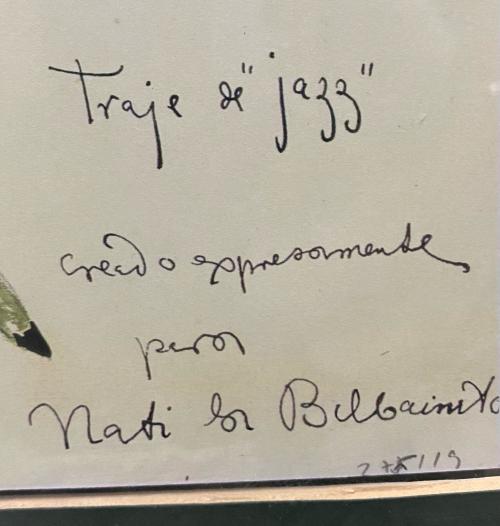 Traje de "jazz"
creado expresamente
para
Nati la Bilbainita